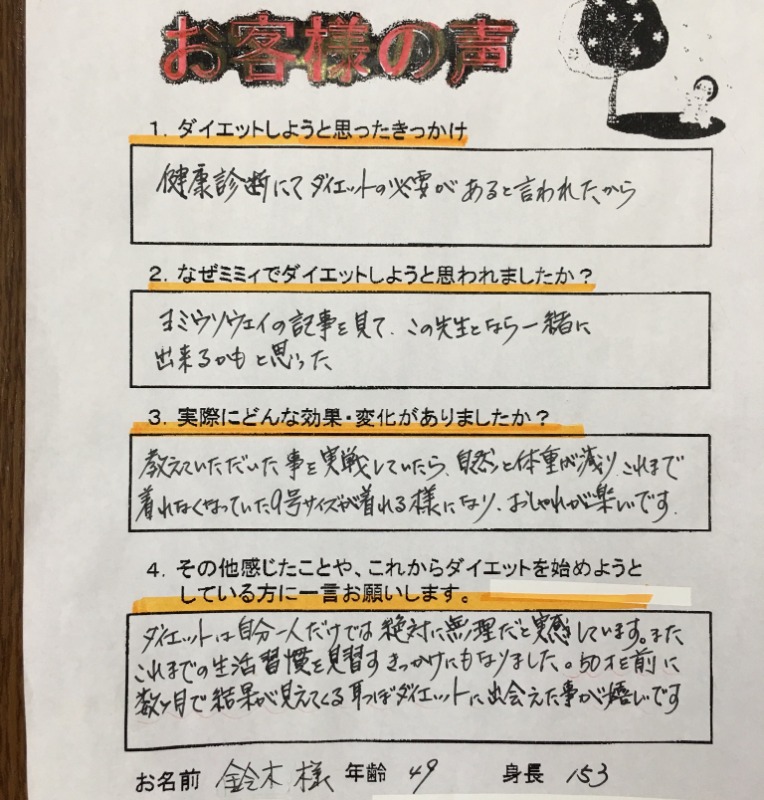 お客様の声
1. ダイエットしようと思ったきっかけ
健康診断にてダイエットの必要があると言われたから
2. なぜミミィでダイエットしようと思われましたか？
ヨミウソウェイの記事を見て、この先生となら一緒に
出来るかもと思った
3. 実際にどんな効果・変化がありましたか？
教えていただいた事を実戦していたら、自然と体重が減り これまで
着れなくなっていた9号サイズが着れる様になり、おしゃれが楽しいです。
4. その他感じたことや、これからダイエットを始めようと
している方に一言お願いします。
ダイエットは自分一人だけでは絶対に無理だと実感しています。また
これまでの生活習慣を見習すきっかけにもなりました。50才を前に
数ヶ月で結果が見えてくる耳つぼダイエットに出会えた事が嬉しいです
お名前 鈴木 様 年齢 49 身長 153